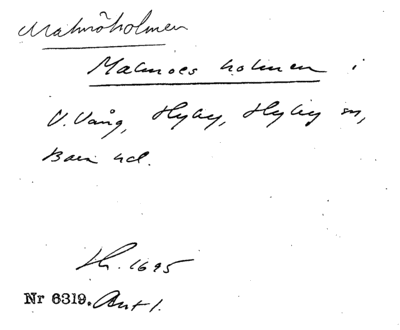 Malmöholmen
Malmoes holmen i
V. Vång, Hyby, Hyby sn,
Bara hd.
Jb. 1695
Nr 6319. Ant 1.